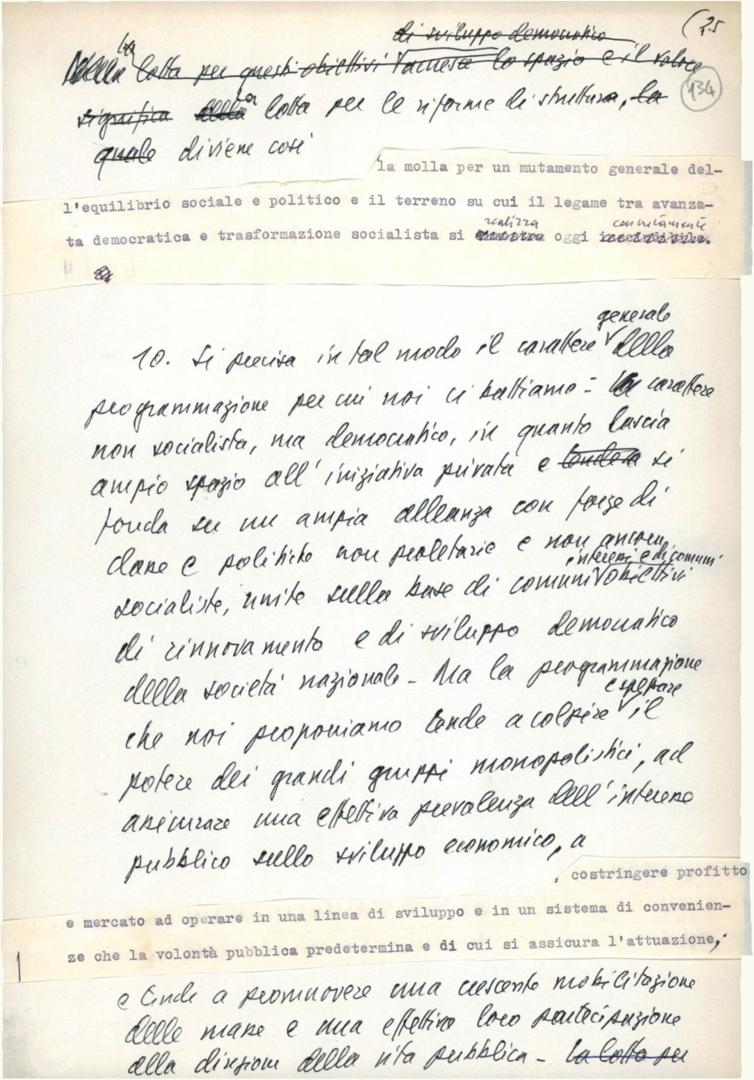 (25
134
di sviluppo democratico
la
Nella lotta per questi obiettivi lo spazio e il valore
significa della la lotta per le riforme di struttura, la
quale diviene così
la molla per un mutamento generale del-
l'equilibrio sociale e politico e il terreno su cui il legame tra avanza-
realizza concretamente
ta democratica e trasformazione socialista si oggi
generale
10. Si precisa in tal modo il carattere della
programmazione per cui noi ci battiamo: carattere
non socialista, ma democratico, in quanto lascia
ampio spazio all'iniziativa privata e tende a si
fonda su un ampia alleanza con forze di
classe e politiche non proletarie e non ancora
interessi e di comuni
socialiste, unite sulla base di comuni obiettivi
di rinnovamento e di sviluppo democratico
della società nazionale - Ma la programmazione
e spezzare
che noi proponiamo tende a colpire il
potere dei grandi gruppi monopolistici, ad
assicurare una effettiva prevalenza dell'interesse
pubblico sullo sviluppo economico, a
, costringere profitto
e mercato ad operare in una linea di sviluppo e in un sistema di convenien-
ze che la volontà pubblica predetermina e di cui si assicura l'attuazione,
e tende a promuovere una crescente mobilitazione
delle masse e una effettiva loro partecipazione
alla direzione della vita pubblica - la lotta per